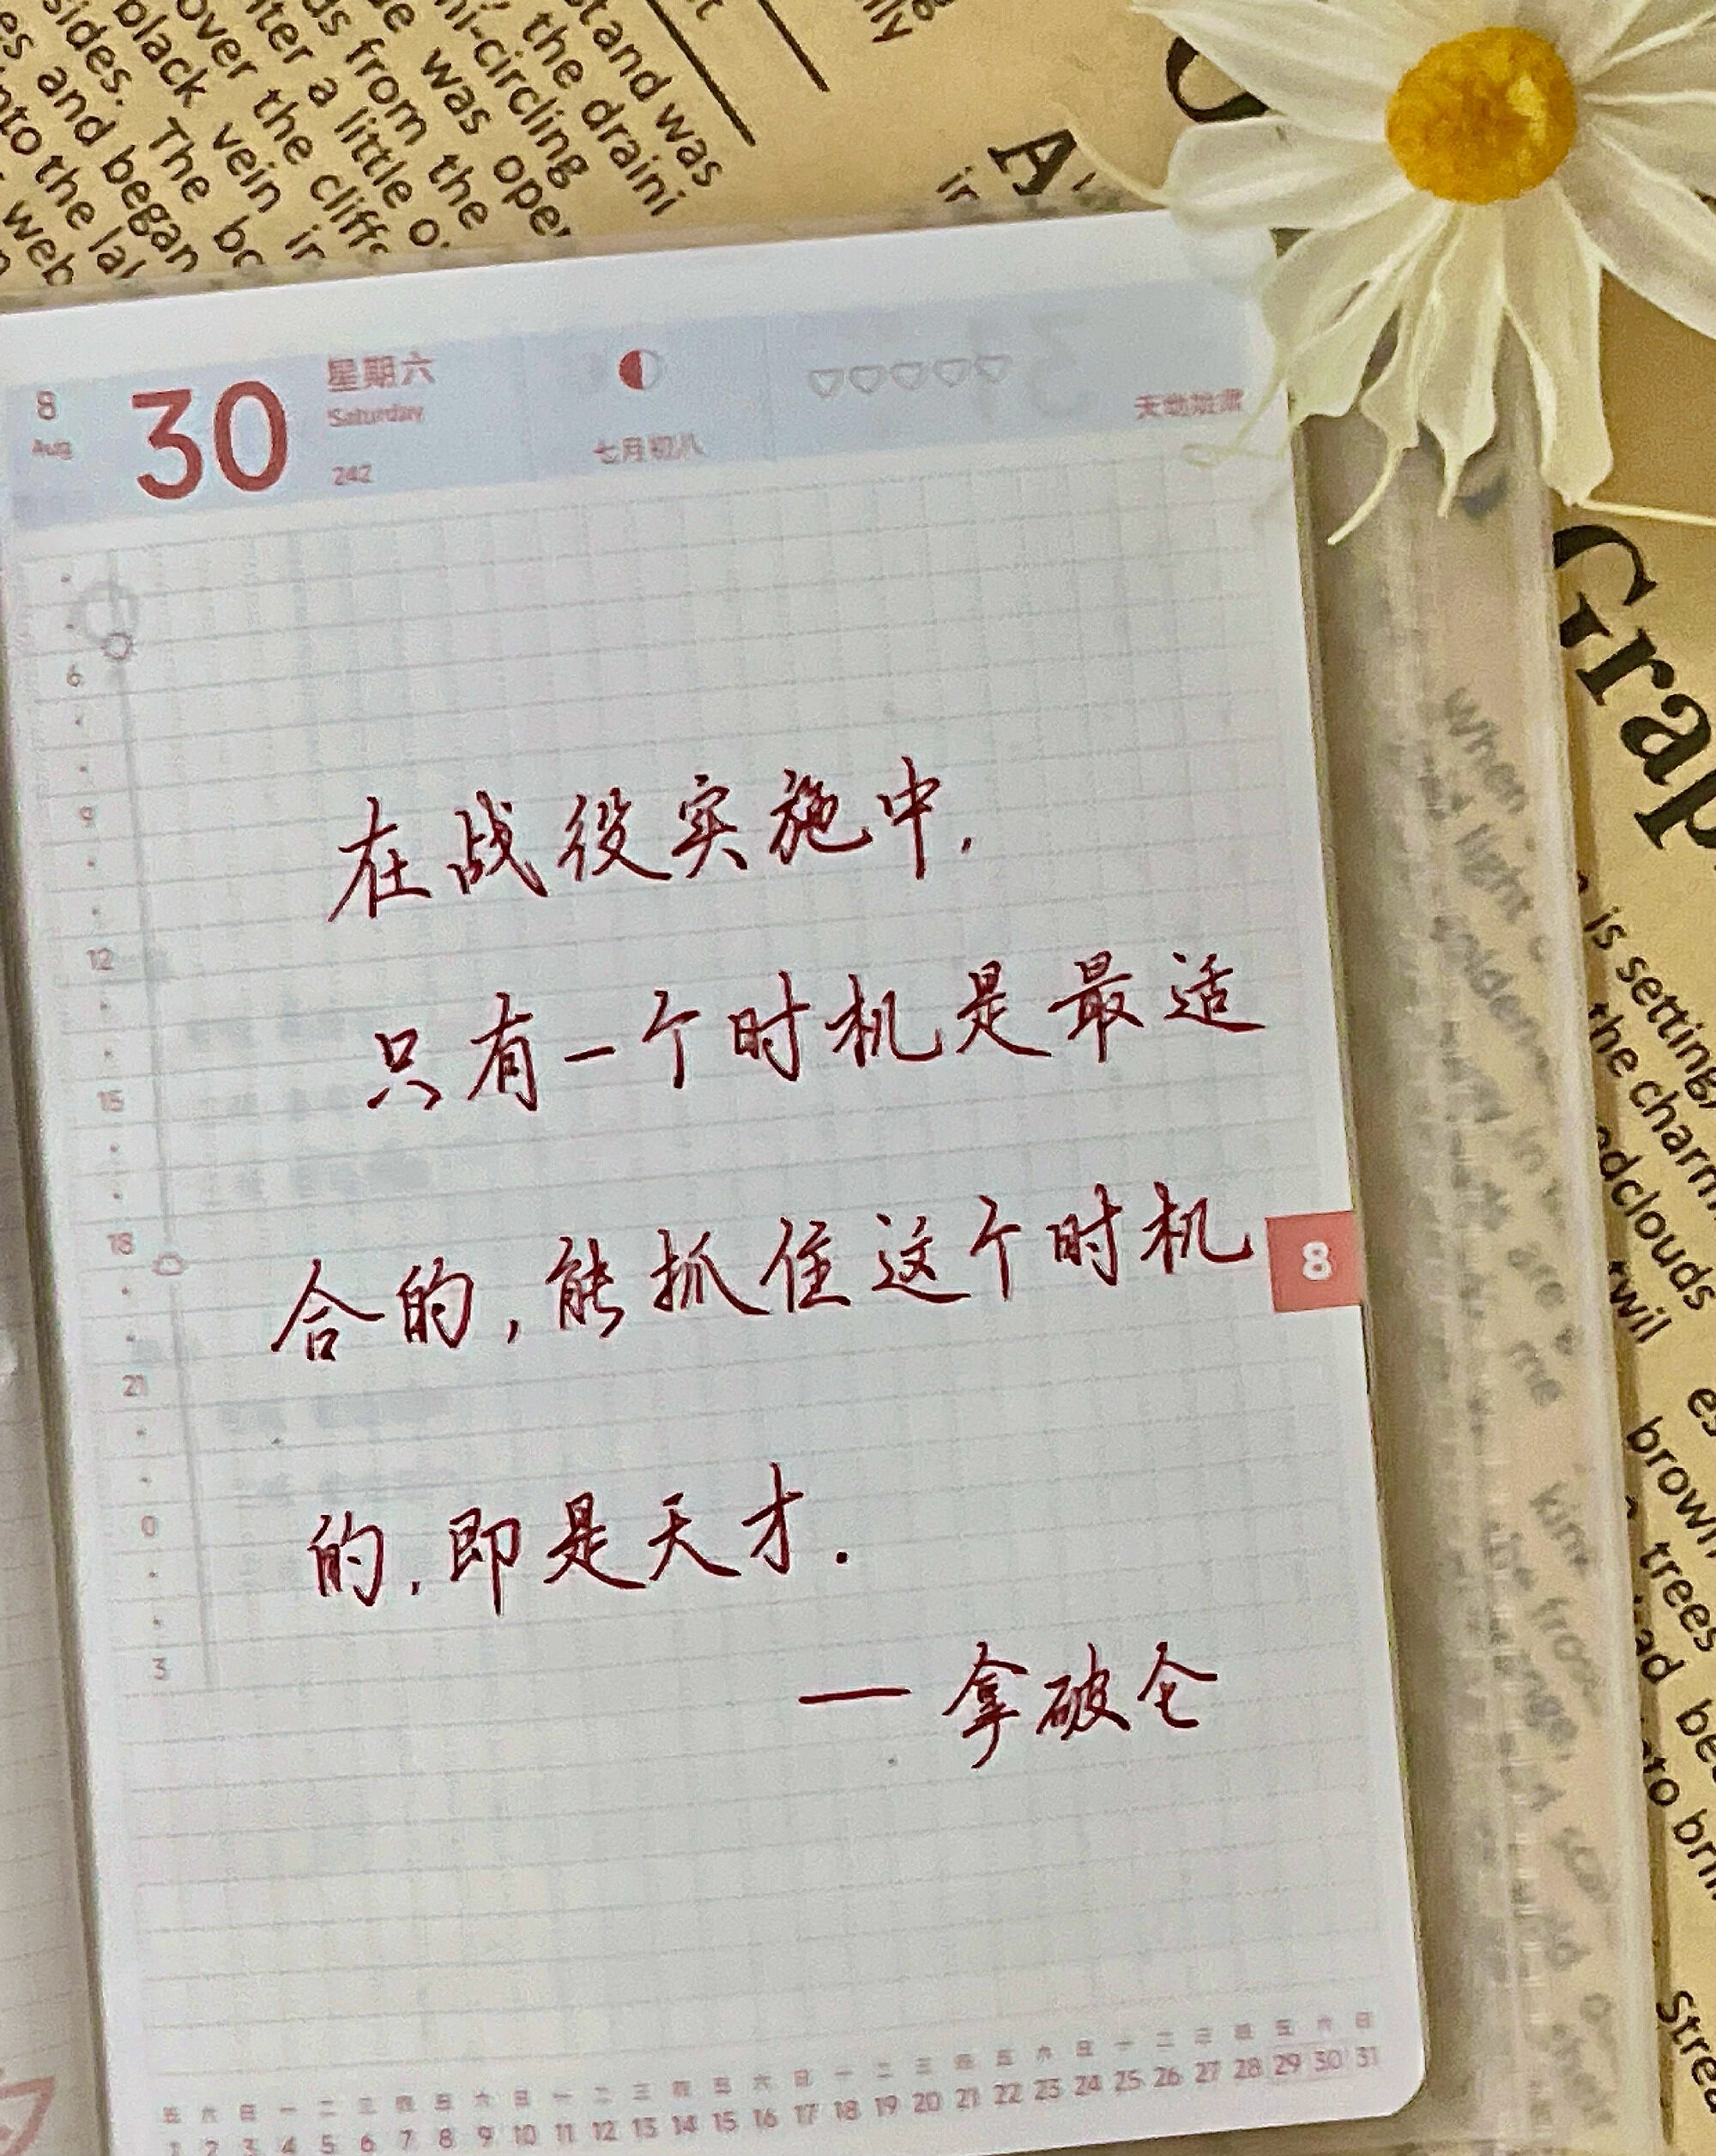 stand was
the draini
mi-circling
was oper
ds from the
fter a little o
over the cliffs
black vein in
sides. The bo
es and began
nto the lal
web
A
ir
8
Aug
30
星期六
Saturday
242
七月初八
天地始肃
6
9
12
15
18
21
0
3
在战役实施中,
只有一个时机是最适
合的,能抓住这个时机
的,即是天才.
— 拿破仑
8
五 六 日 一 二 三 四 五 六 日 一 二 三 四 五 六 日 一 二 三 四 五 六 日 一 二 三 四 五 六 日
1 2 3 4 5 6 7 8 9 10 11 12 13 14 15 16 17 18 19 20 21 22 23 24 25 26 27 28 29 30 31
Grap
When
light
golden
are
me
is setting,
the charm
edclouds
brown
trees
Strea